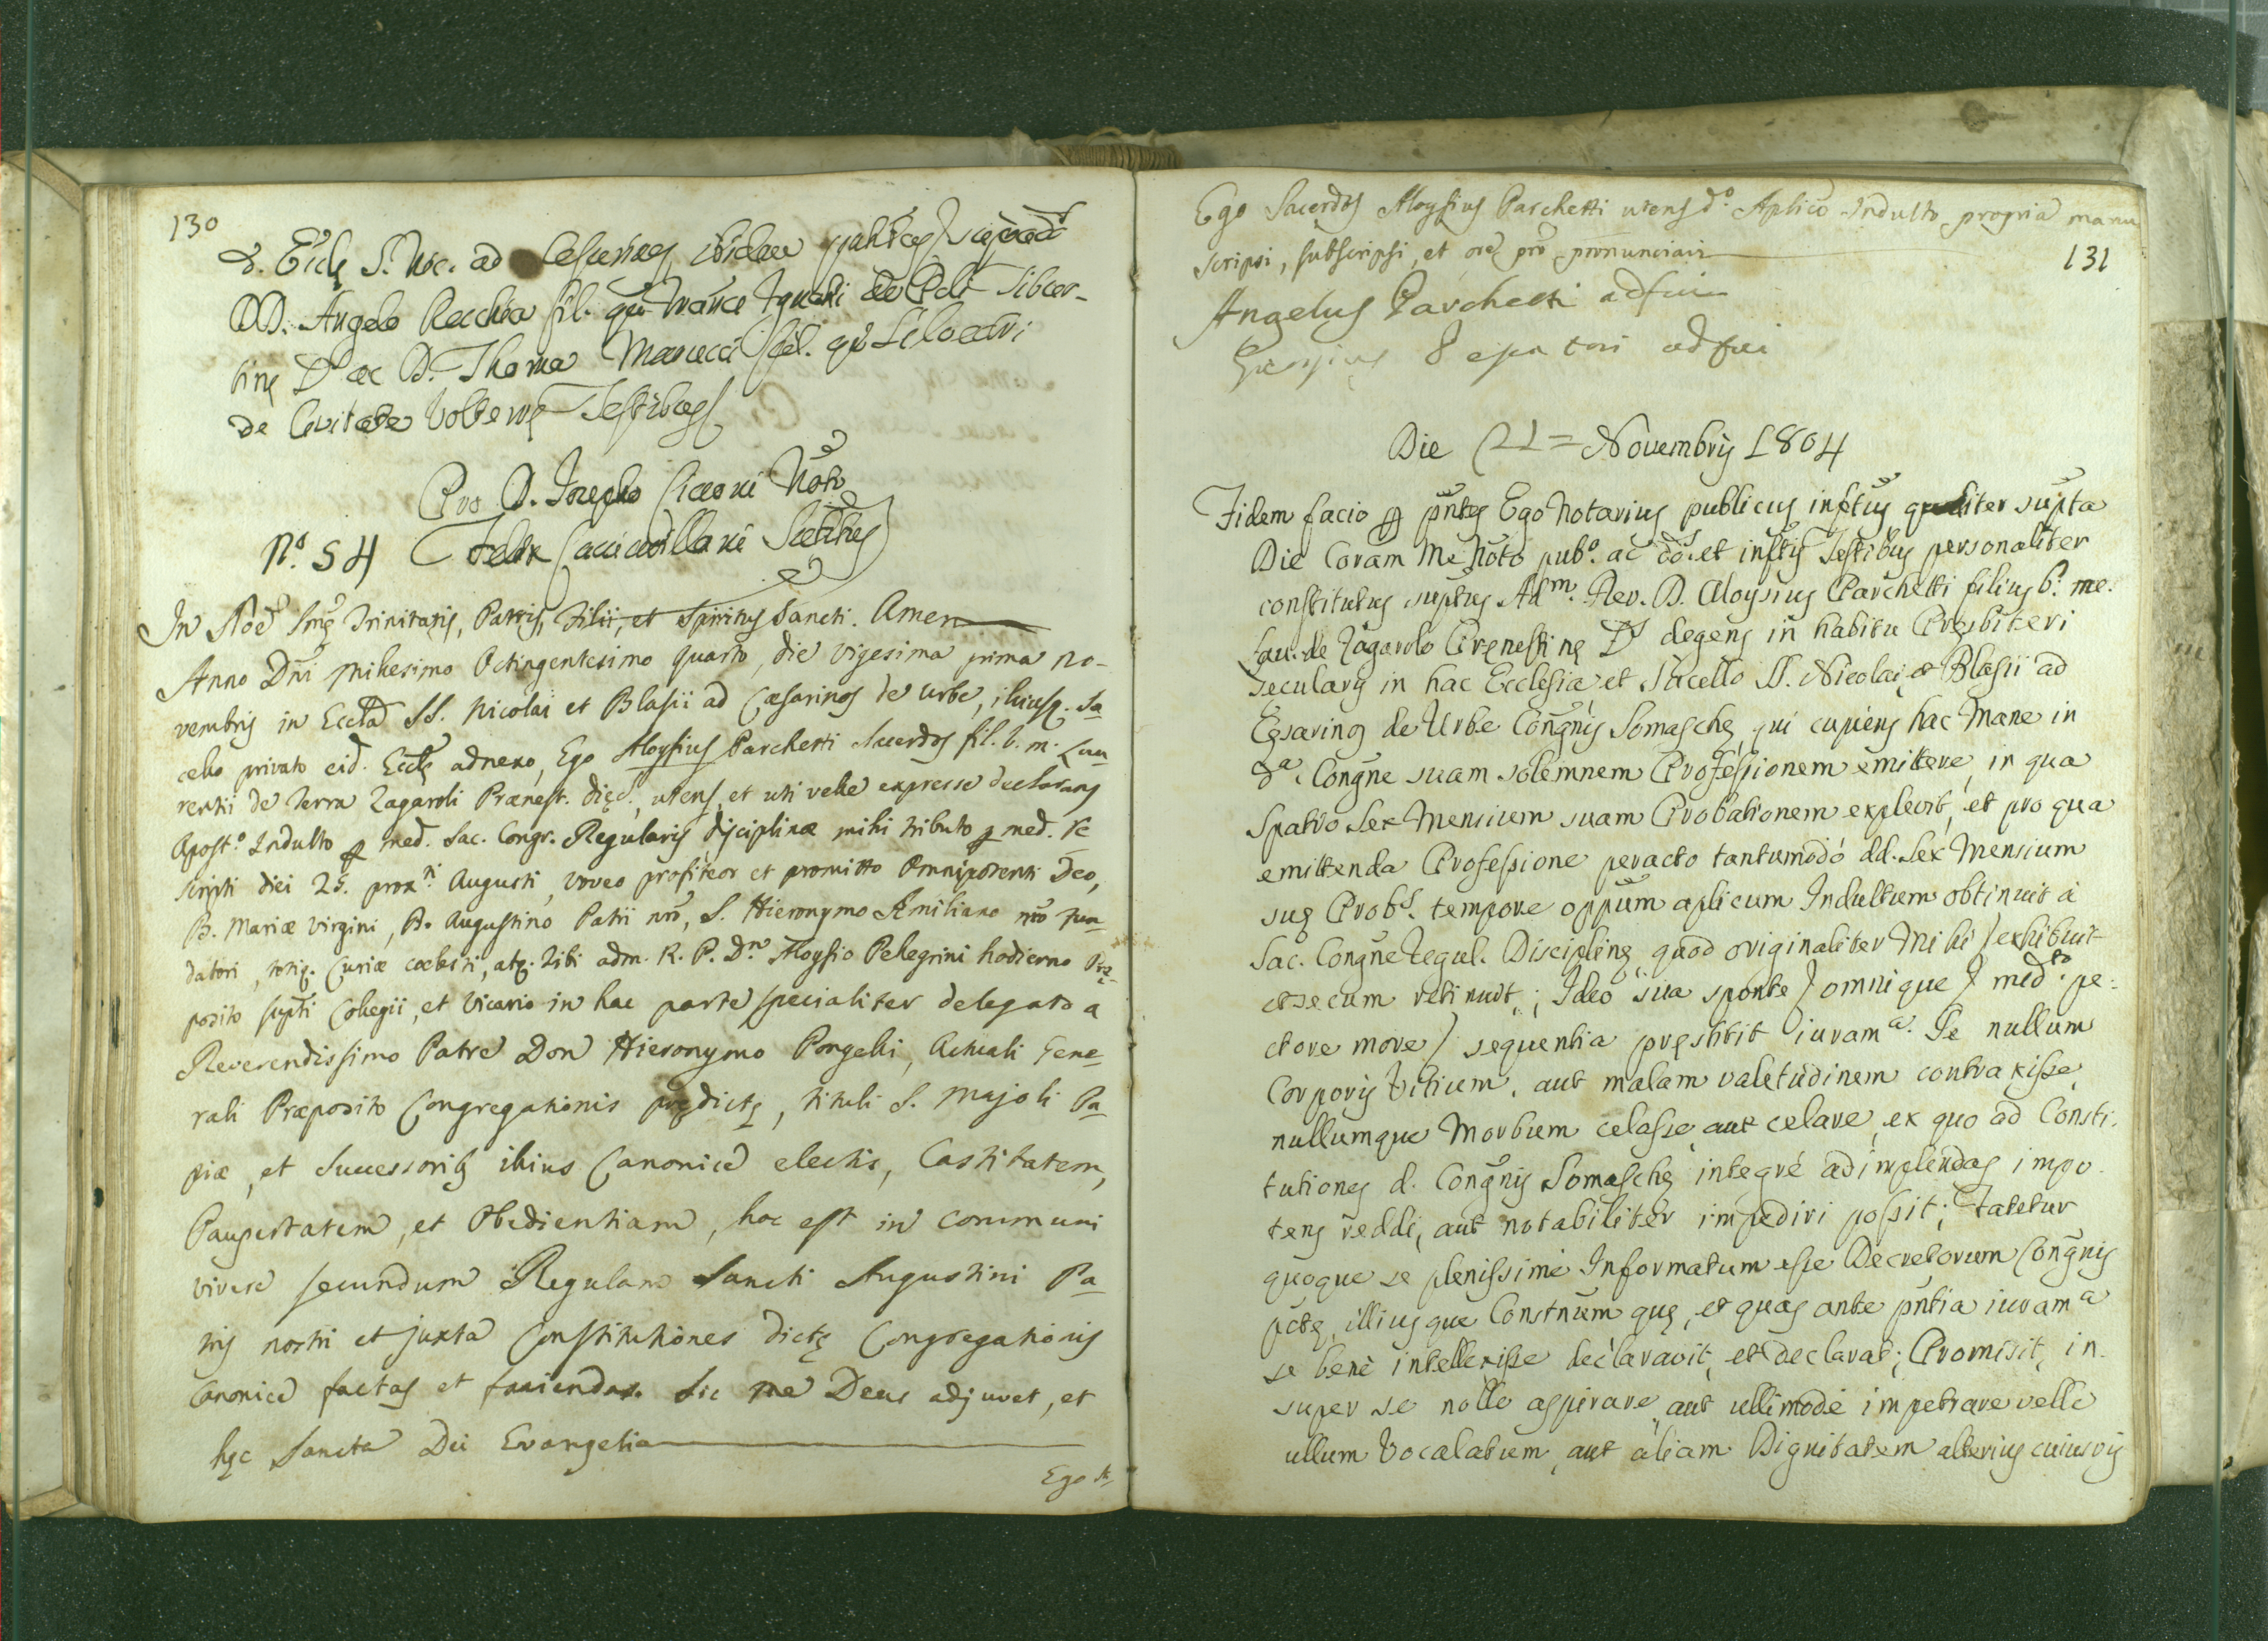 130
d. Eccle S. Nic. ad Cesarinos, ibidem
DD. Angelo Recchia fil. qm Franci de Poli Tibur-
tine D. ac D. Thoma Marucci fil. qm
de Civitate Volterre Testibus
Pro D. Josepho Cicconi Noto
N.º 54 Felix Testibus
In Noe Sme Trinitatis, Patris, Filii, et Spiritus Sancti. Amen
Anno Dni milesimo Octingentesimo quarto, die vigesima prima no-
vembris in Eccla SS. Nicolai et Blasii ad Cæsarinos de Urbe, illiusq. sa-
cello privato eid. Eccle adnexo, Ego Aloysius Parchetti Sacerdos fil. b. m. Lau-
rentii de Terra Zagaroli Prænest. Diec., utens, et uti velle expresse declarans
Apost.º Indulto per med. Sac. Congr. Regularis disciplinæ mihi tributo per med. re
scripti diei 25. prox.i Augusti, voveo profiteor et promitto Omnipotenti Deo,
B. Mariæ Virgini, B. Augustino Patri nro, S. Hieronymo Æmiliano nro fun-
datori, totiq. Curiæ cœlesti, atq. Tibi adm. R. P. D.no Aloysio Pellegrini hodierno Præ-
posito supti Collegii, et Vicario in hac parte specialiter delegato a
Reverendissimo Patre Don Hieronymo Pongelli, Actuali Gene-
rali Præposito Congregationis predicte, tituli S. Majoli Pa-
piæ, et Successorib. illius Canonice electis, Castitatem,
Paupertatem, et Obedientiam, hoc est in communi
vivere secundum Regulam Sancti Augustini Pa-
tris nostri et juxta Constitutiones dicte Congregationis
Canonice factas et faciendas. Sic me Deus adjuvet, et
hęc Sancta Dei Evangelia
Ego S.
Ego Sacerdos Aloysius Parchetti utens d.º Aplico Indulto propria manu
scripsi, subscripsi, et ore pro pronunciavi
131
Angelus Parchetti adfui
adfui
Die 21 = Novembris 1804
Fidem facio per pntes Ego Notarius publicus inftus qualiter supta
Die Coram me Noto pub.º ac et inftis Testibus personaliter
constitutus suptus Ad.m Rev. D. Aloysius Parchetti filius b. me.
Lau. de Zagarolo Prenestine D. degens in habitu Presbiteri
secularis in hac Ecclesia et Sacello SS. Nicolai, et Blasii ad
Cęsarinos de Urbe Congnis Somasche, qui cupiens hac Mane in
d.a Congne suam solemnem Professionem emittere, in qua
Spatio sex Mensium suam Probationem explevit, et pro qua
emittenda Professione peracto tantumodo dd. sex Mensium
suę Prob.s tempore oppum aplicum Indultum obtinuit a
Sac. Congne Regul. Discipline, quod originaliter Mihi exhibuit
et secum retinuit; Ideo sua sponte / omnique / med.to pe-
ctore more / sequentia pręstitit iuram.a Se nullum
Corporis Vitium, aut malam valetudinem contraxisse,
nullumque Morbum celasse, aut celare, ex quo ad Consti-
tutiones d. Congnis Somasche integrè adimplendas impo-
tens reddi, aut notabiliter impediri possit; Fatetur
quoque se plenissimè Informatum esse Decretorum Congnis
pcte, illiusque Constnum que, et quas ante pntia iuram.a
se benè intellexisse declaravit, et declarat; Promisit, in-
super se nolle aspirare, aut ullimodè impetrare velle
ullum Vocalatum, aut aliam Dignitatem alterius cuiusvis